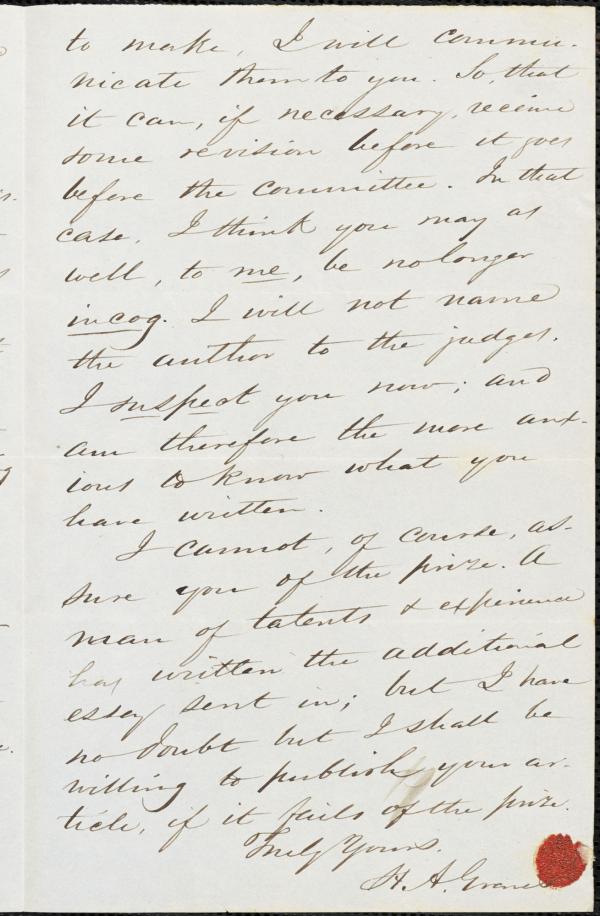 to make, I will commu-
nicate them to you. So, that
it can, if necessary, receive
some revision before it goes
before the committee. In that
case, I think you may as
well, to me, be no longer
incog. I will not name
the author to the judges.
I suspect you now; and
am therefore the more anx-
ious to know what you
have written.
I cannot, of course, as-
sure you of the prize. A
man of talents & experience
has written the additional
essay sent in; but I have
no doubt but I shall be
willing to publish your ar-
ticle, if it fails of the prize.
Truly Yours.
H. A. Graves